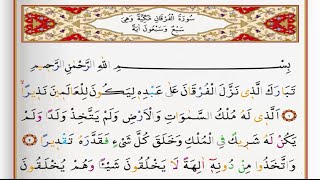 سُورَةُ الْفُرْقَانِ مَكِّيَّةٌ وَهِيَ
سَبْعٌ وَسَبْعُونَ اٰيَةً
بِسْـــــــمِ اللّٰهِ الرَّحْمٰنِ الرَّحٖيمِ
تَبَارَكَ الَّذٖى نَزَّلَ الْفُرْقَانَ عَلٰى عَبْدِهٖ لِيَكُونَ لِلْعَالَمٖينَ نَذٖيرًاۙ ﴿١﴾
اَلَّذٖى لَهُ مُلْكُ السَّمٰوَاتِ وَالْاَرْضِ وَلَمْ يَتَّخِذْ وَلَدًا وَلَمْ
يَكُنْ لَهُ شَرٖيكٌ فِى الْمُلْكِ وَخَلَقَ كُلَّ شَىْءٍ فَقَدَّرَهُ تَقْدٖيرًا ﴿٢﴾
وَاتَّخَذُوا مِنْ دُونِهٖٓ اٰلِهَةً لَا يَخْلُقُونَ شَيْـًٔا وَهُمْ يُخْلَقُونَ